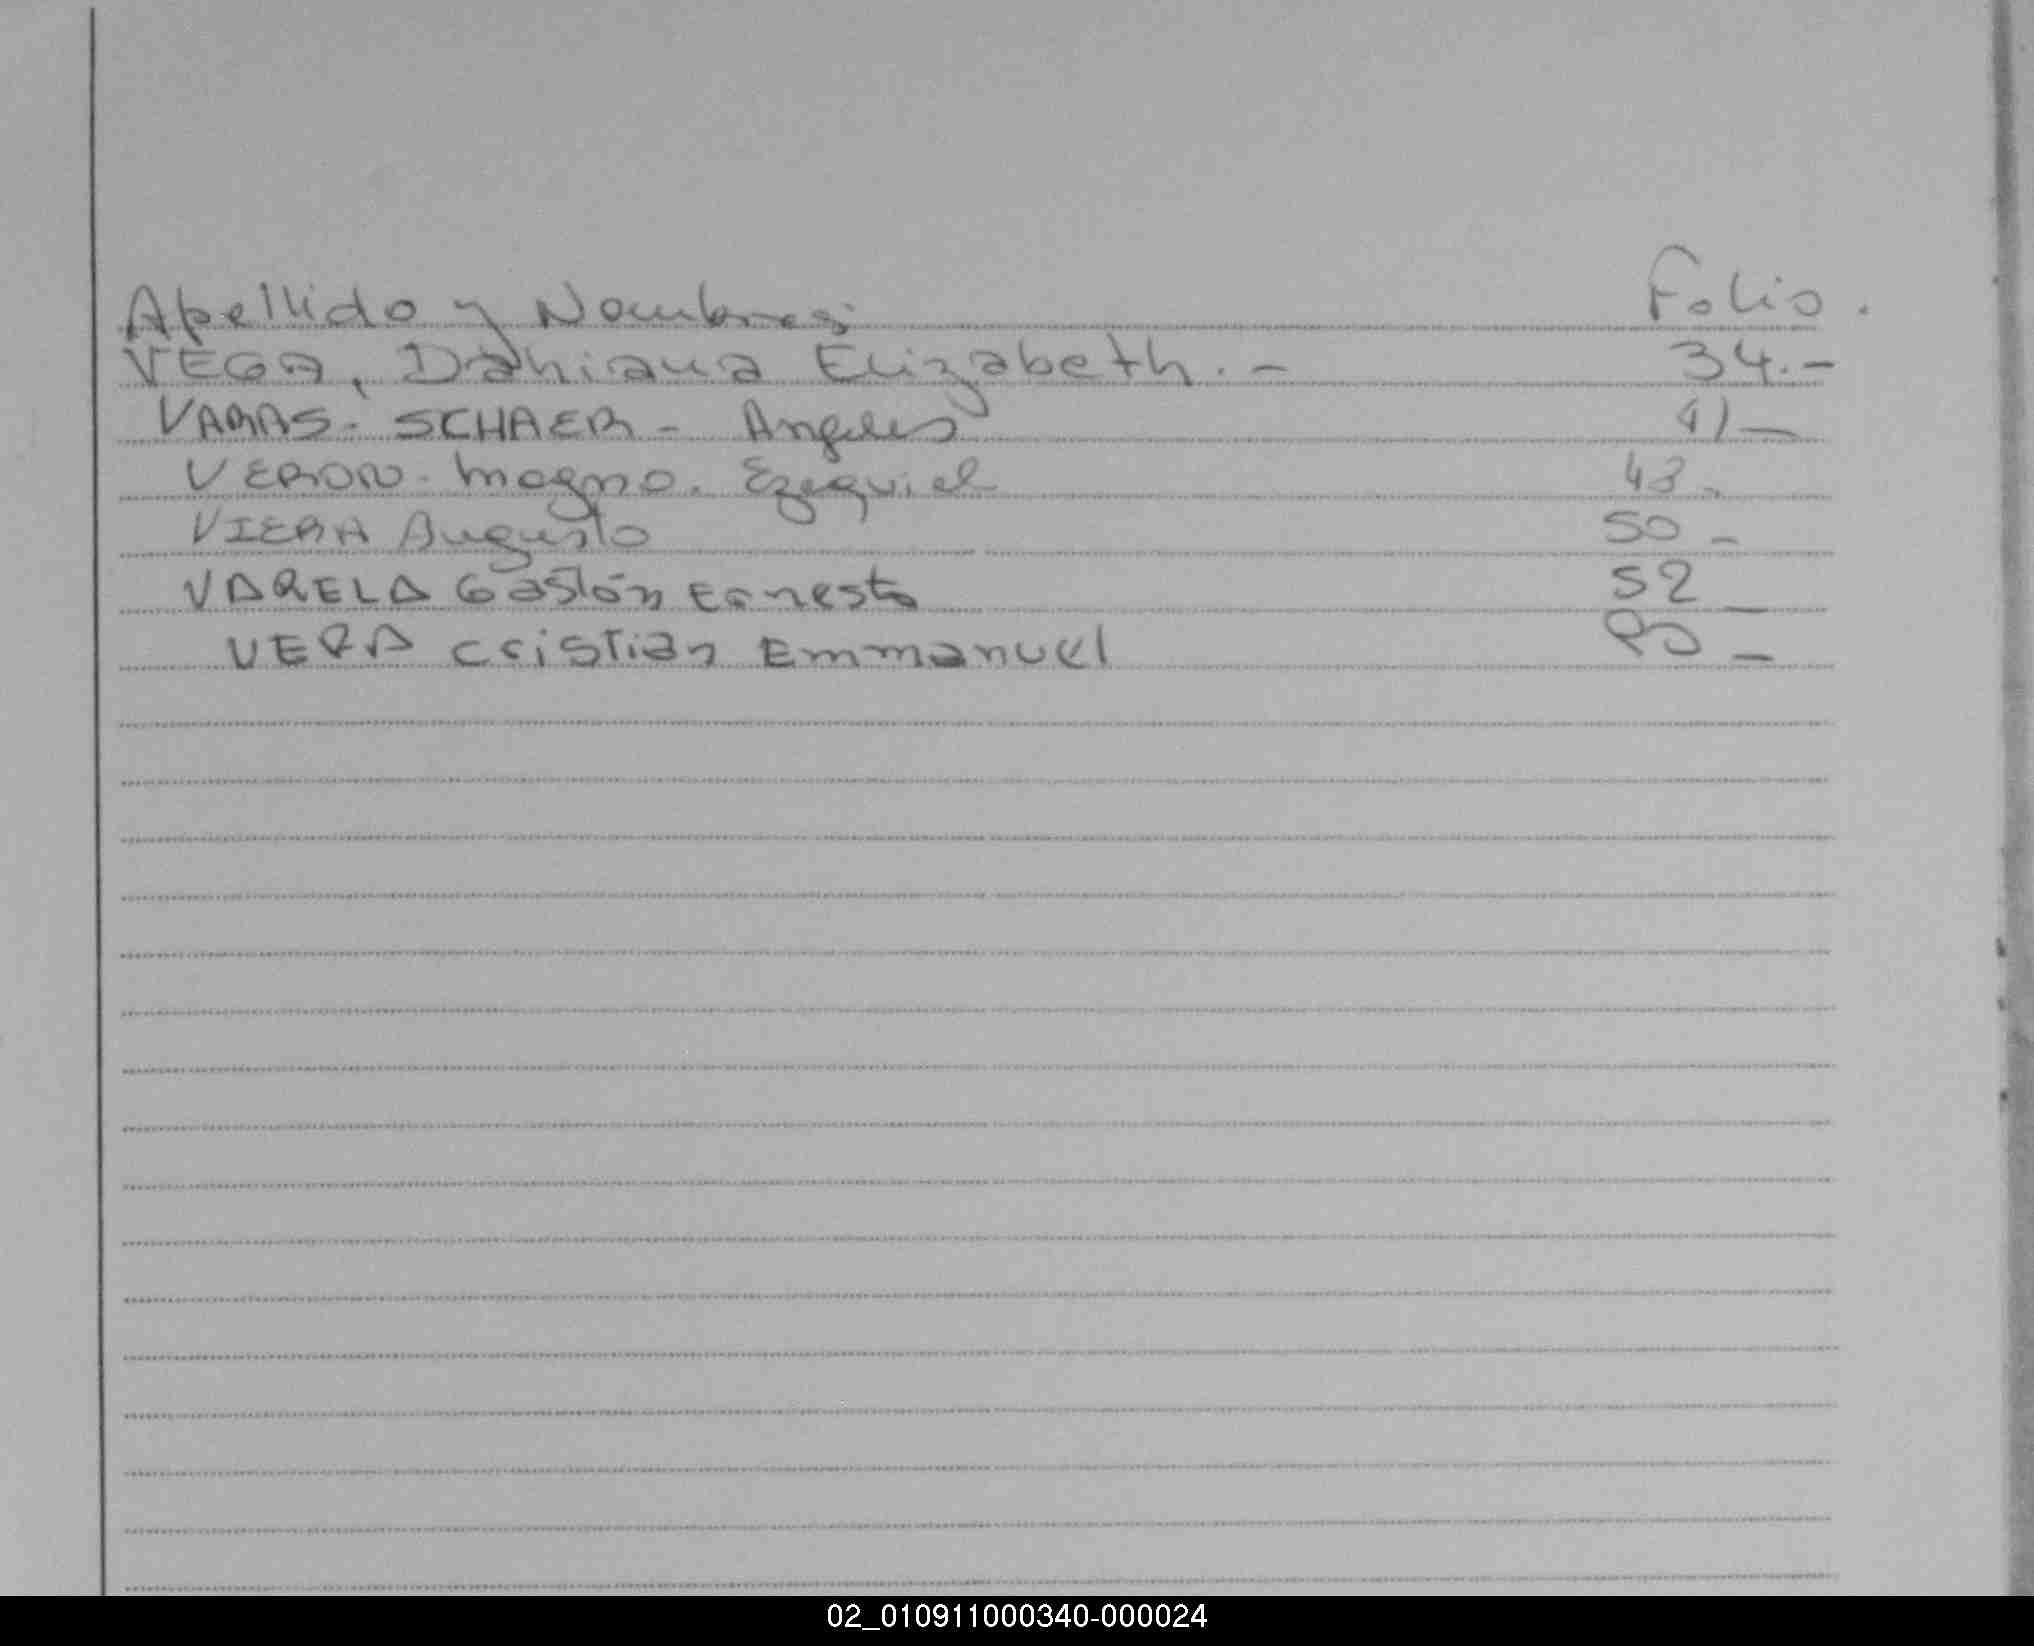 Apellido y Nombres Folio.
VEGA, Dahiana Elizabeth.- 34.-
VARAS- SCHAER- Angeles 41-
VERON- Magno. Ezequiel 43-
VIERA Augusto 50-
VARELA Gastón Ernesto 52-
VERA Cristian Emmanuel
02_010911000340-000024